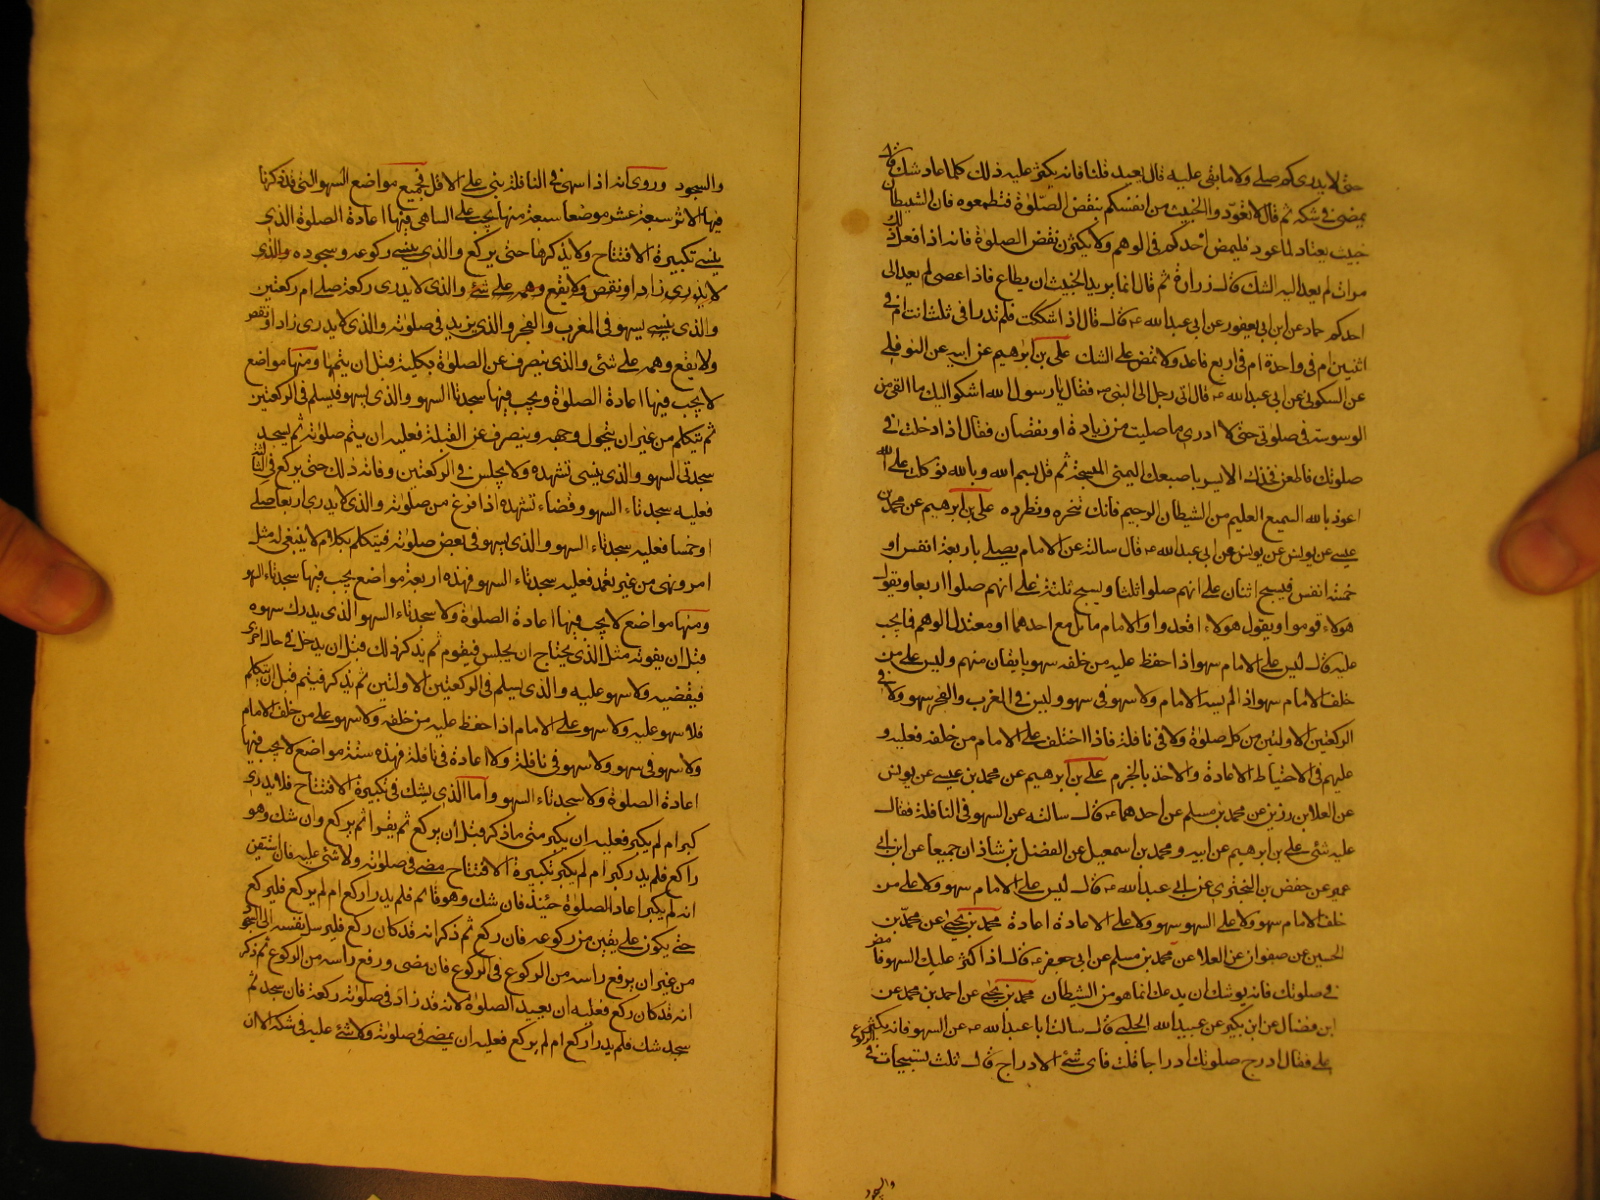 حتى لا يدرى كم صلى ولا ما بقى عليه قال يعيد قلنا فانه يكثر عليه ذلك كلما عاد شك قال
يمضى فى شكه ثم قال لا تعودوا الخبيث من انفسكم بنقض الصلوة فتطمعوه فان الشيطان
خبيث يعتاد لما عود فليمض احدكم فى الوهم ولا يكثرن نقض الصلوة فانه اذا فعل ذلك
مرات لم يعد اليه الشك قال زرارة ثم قال انما يريد الخبيث ان يطاع فاذا عصى لم يعد الى
احدكم حماد عن ابن ابى يعفور عن ابى عبد الله قال اذا شككت فلم تدر افى ثلث انت ام فى
اثنين ام فى واحدة ام فى اربع فاعد ولا تمض على الشك على بن ابرهيم عن ابيه عن النوفلى
عن السكونى عن ابى عبد الله قال اتى رجل الى النبى فقال يا رسول الله اشكو اليك ما القى من
الوسوسة فى صلوتى حتى لا ادرى ما صليت من زيادة او نقصان فقال اذا دخلت فى
صلوتك فاطعن فخذك الايسر باصبعك اليمنى المسبحة ثم قل بسم الله وبالله توكلت على الله
اعوذ بالله السميع العليم من الشيطان الرجيم فانك تنحره وتطرده على بن ابرهيم عن محمد بن
عيسى عن يونس عن يونس عن ابى عبد الله قال سالته عن الامام يصلى باربعة انفس او
خمسة انفس فيسبح اثنان على انهم صلوا ثلثا ويسبح ثلثة على انهم صلوا اربعا ويقول
هولاء قوموا ويقول هولاء اقعدوا والامام مائل مع احدهما او معتدل الوهم فما يجب
عليه قال ليس على الامام سهو اذا حفظ عليه من خلفه سهوه بايقان منهم وليس على من
خلف الامام سهو اذا لم يسه الامام ولا سهو فى سهو وليس فى المغرب والفجر سهو ولا فى
الركعتين الاولتين من كل صلوة ولا فى نافلة فاذا اختلف على الامام من خلفه فعليه و
عليهم فى الاحتياط الاعادة والاخذ بالجزم على بن ابرهيم عن محمد بن عيسى عن يونس
عن العلا بن رزين عن محمد بن مسلم عن احدهما قال سالته عن السهو فى النافلة فقال
عليه شئ على بن ابرهيم عن ابيه ومحمد بن اسمعيل عن الفضل بن شاذان جميعا عن ابن ابى
عمير عن حفص بن البخترى عن ابى عبد الله قال ليس على الامام سهو ولا على من
خلف الامام سهو ولا على السهو سهو ولا على الاعادة اعادة محمد بن يحيى عن محمد بن
الحسين عن صفوان عن العلا عن محمد بن مسلم عن ابى جعفر قال اذا كثر عليك السهو فامض
فى صلوتك فانه يوشك ان يدعك انما هو من الشيطان محمد بن يحيى عن احمد بن محمد عن
ابن فضال عن ابن بكير عن عبيد الله الحلبى قال سالت ابا عبد الله عن السهو فانه يكثر
على فقال ادرج صلوتك ادراجا قلت فاى شئ الادراج قال ثلث تسبيحات فى الركوع
والسجود
والسجود وروى انه اذا سهى فى النافلة بنى على الاقل فجميع مواضع السهو التى قد ذكرنا
فيها الاثر سبعة عشر موضعا سبعة منها يجب على الساهى فيها اعادة الصلوة الذى
ينسى تكبيرة الافتتاح ولا يذكرها حتى يركع والذى ينسى ركوعه وسجوده والذى
لا يدرى زاد او نقص ولا يقع وهمه على شئ والذى لا يدرى ركعة صلى ام ركعتين
والذى ينسى يسهو فى المغرب والفجر والذى يزيد فى صلوته والذى لا يدرى زاد او نقص
ولا يقع وهمه على شئ والذى ينصرف عن الصلوة بكليته قبل ان يتمها ومنها مواضع
لا يجب فيها اعادة الصلوة ويجب فيها سجدتا السهو والذى يسهو فيسلم فى الركعتين
ثم يتكلم من غير ان يتحول وجهه وينصرف عن القبلة فعليه ان يتم صلوته ثم يسجد
سجدتى السهو والذى ينسى تشهده ولا يجلس فى الركعتين وفاته ذلك حتى يركع فى الثالثة
فعليه سجدتاء السهو وقضاء تشهده اذا فرغ من صلوته والذى لا يدرى اربعا صلى
او خمسا فعليه سجدتاء السهو والذى يسهو فى بعض صلوته فيتكلم بكلام لا ينبغى له مثل
امر ونهى من غير تعمد فعليه سجدتاء السهو فهذه اربعة مواضع يجب فيها سجدتاء السهو
ومنها مواضع لا يجب فيها اعادة الصلوة ولا سجدتاء السهو الذى يدرك سهوه
قبل ان يفوته مثل الذى يحتاج ان يجلس فيقوم ثم يذكر ذلك قبل ان يدخل فى حالة اخرى
فيقضيه ولا سهو عليه والذى يسلم فى الركعتين الاولتين ثم يذكر فيتم قبل ان يتكلم
فلا سهو عليه ولا سهو على الامام اذا حفظ عليه من خلفه ولا سهو على من خلف الامام
ولا سهو فى سهو ولا سهو فى نافلة ولا اعادة فى نافلة فهذه ستة مواضع لا يجب فيها
اعادة الصلوة ولا سجدتاء السهو واما الذى يشك فى تكبيرة الافتتاح فلا يدرى
كبر ام لم يكبر فعليه ان يكبر متى ما ذكر قبل ان يركع ثم يقرا ثم يركع وان شك وهو
راكع فلم يدر كبر ام لم يكبر تكبيرة الافتتاح مضى فى صلوته ولا شئ عليه فان استيقن
انه لم يكبر اعاد الصلوة حينئذ فان شك وهو قائم فلم يدر اركع ام لم يركع فليركع
حتى يكون على يقين من ركوعه فان ركع ثم ذكر انه قد كان ركع فليرسل نفسه الى السجود
من غير ان يرفع راسه من الركوع فى الركوع فان مضى ورفع راسه من الركوع ثم ذكر
انه قد كان ركع فعليه ان يعيد الصلوة لانه قد زاد فى صلوته ركعة فان سجد ثم
سجد شك فلم يدر اركع ام لم يركع فعليه ان يمضى فى صلوته ولا شئ عليه فى شكه الا ان